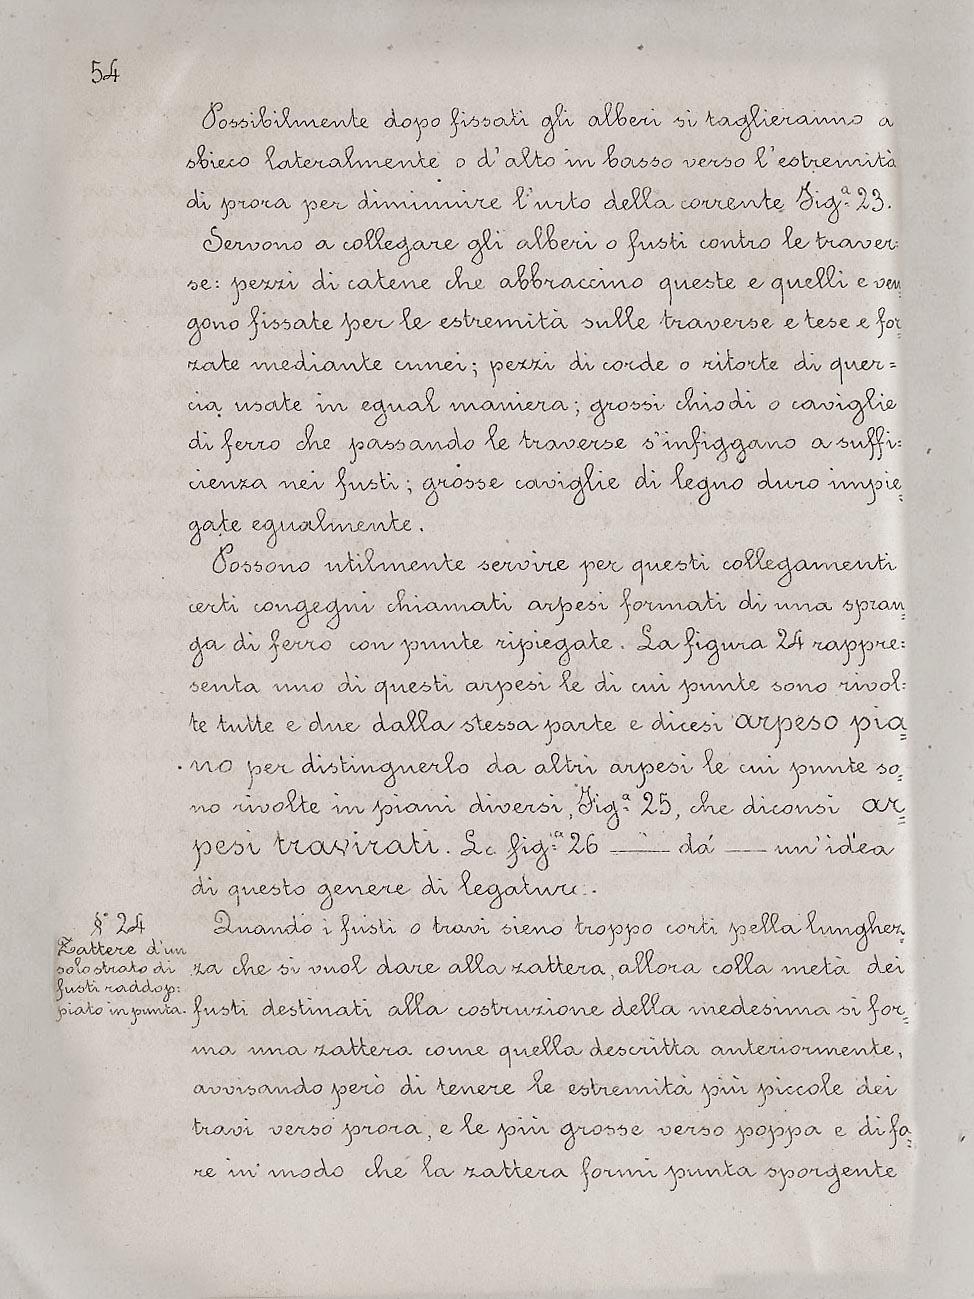 54
Possibilmente dopo fissati gli alberi si taglieranno a
sbieco lateralmente o d'alto in basso verso l'estremità
di prora per diminuire l'urto della corrente Figª. 23.
Servono a collegare gli alberi o fusti contro le traver:
se: pezzi di catene che abbraccino queste e quelli e ven
gono fissate per le estremità sulle traverse e tese e for=
zate mediante cunei; pezzi di corde o ritorte di quer=
cia usate in egual maniera; grossi chiodi o caviglie
di ferro che passando le traverse s'infiggano a suffi:
cienza nei fusti; grosse caviglie di legno duro impie=
gate egualmente.
Possono utilmente servire per questi collegamenti
certi congegni chiamati arpesi formati di una spran=
ga di ferro con punte ripiegate. La figura 24 rappre:
senta uno di questi arpesi le di cui punte sono rivol:
te tutte e due dalla stessa parte e dicesi arpeso pia=
no per distinguerlo da altri arpesi le cui punte so=
no rivolte in piani diversi, Figª. 25, che diconsi ar=
pesi travirati. La figª. 26 —— dá —— un'idea
di questo genere di legature.
§° 24
Zattere d'un
solo strato di
fusti raddop:
piato in punta.
Quando i fusti o travi sieno troppo corti pella lunghez=
za che si vuol dare alla zattera, allora colla metà dei
fusti destinati alla costruzione della medesima si for=
ma una zattera come quella descritta anteriormente,
avvisando però di tenere le estremità più piccole dei
travi verso prora, e le più grosse verso poppa e di fa=
re in modo che la zattera formi punta sporgente